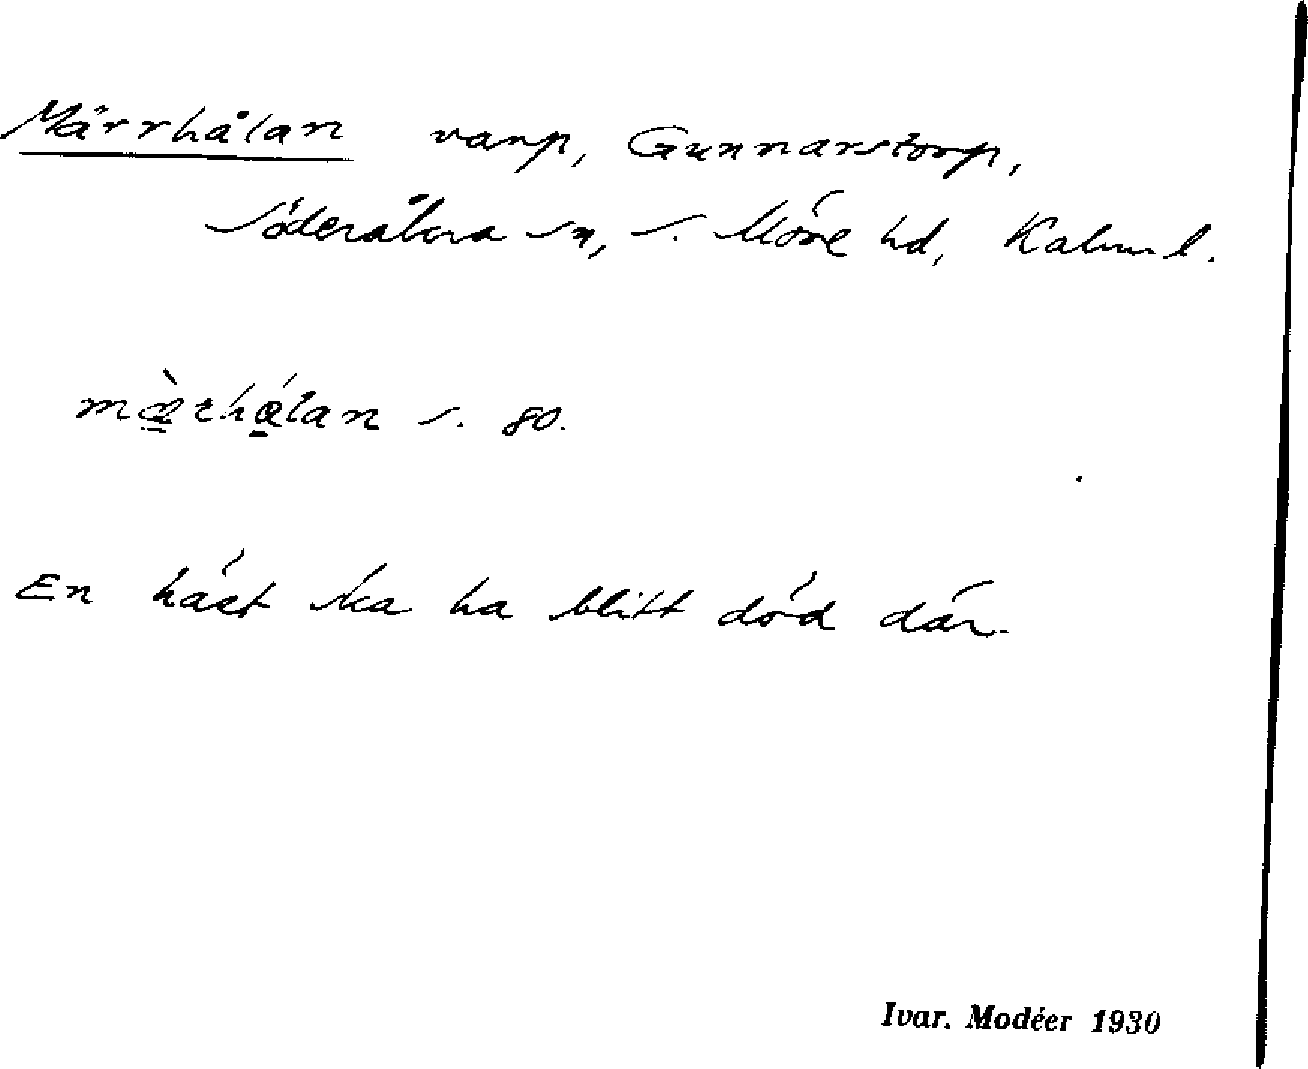 Märrhålan varp, Gunnarstorp,
Söderåkra sn, s. Möre hd, Kalm. l.
mæ̀rhǻlan s. 80.
En häst ska ha blitt död där.
Ivar. Modéer 1930